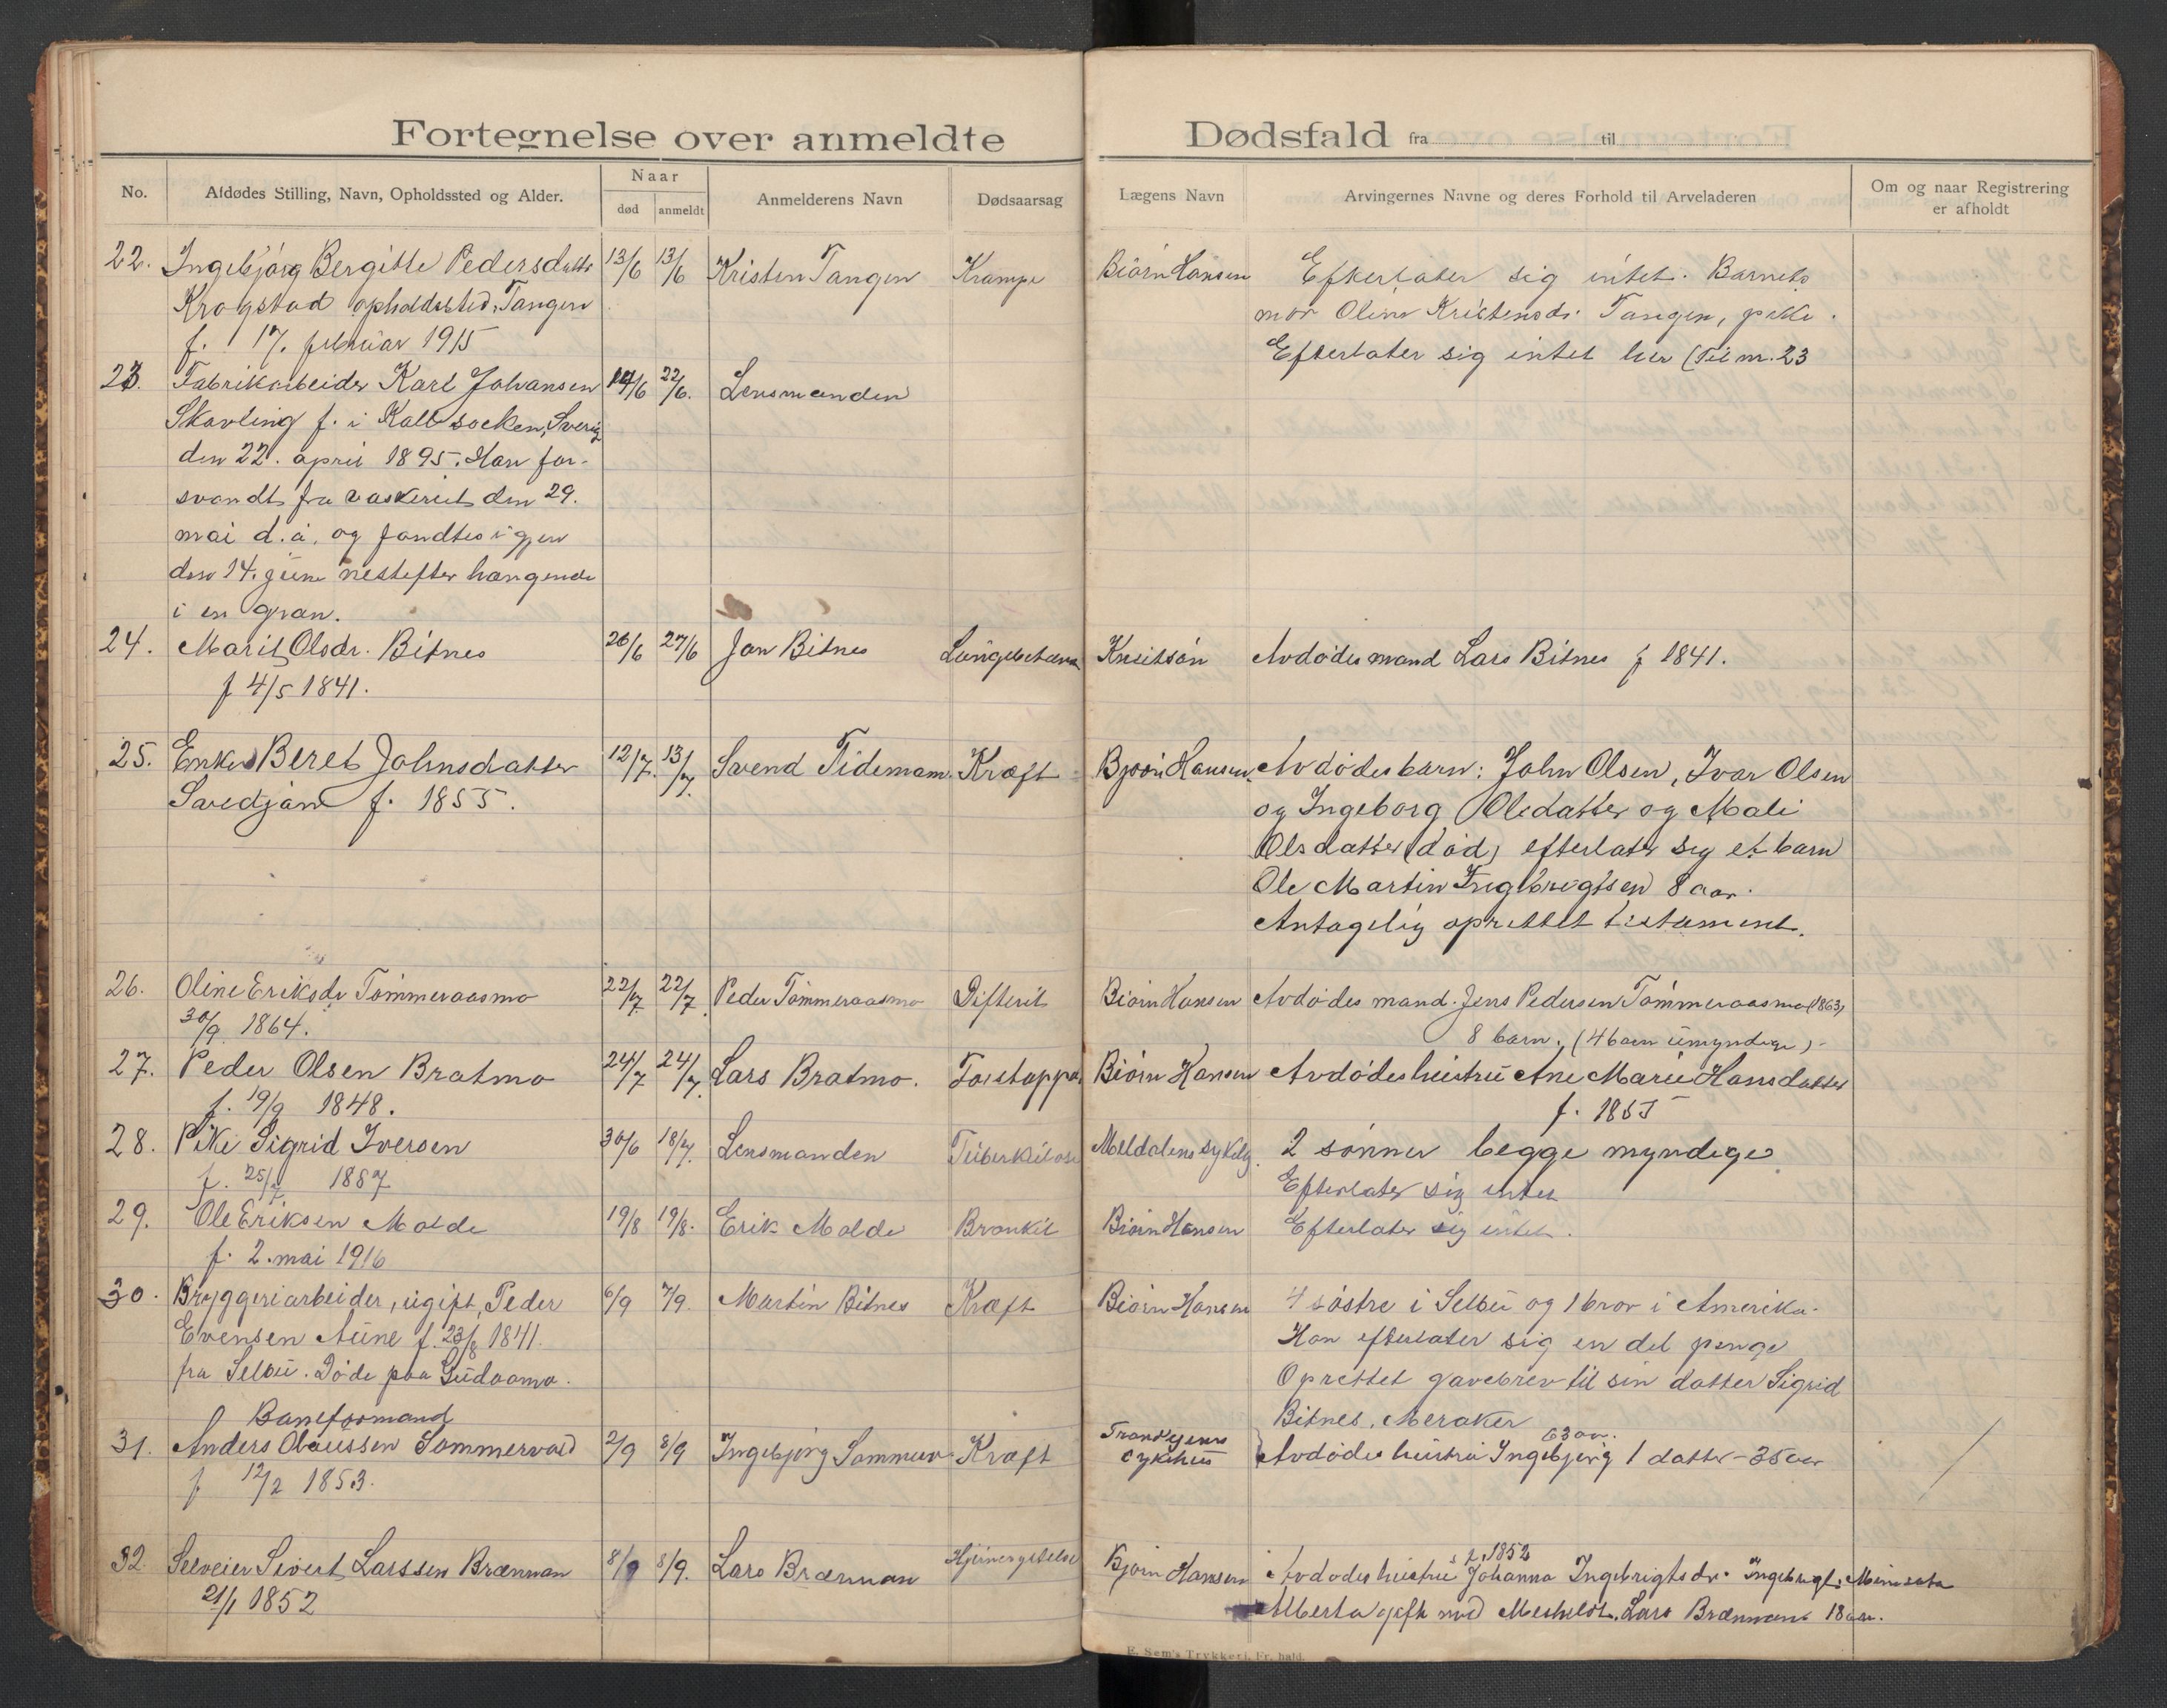 Fortegnelse over anmeldte Dødsfald fra til
No. Afdødes Stilling, Navn, Opholdssted og Alder. Naar død anmeldt Anmelderens Navn Dødsaarsag Lægens Navn Arvingernes Navne og deres Forhold til Arveladeren Om og naar Registrering er afholdt
22. Ingebjørg Bergitte Pedersdatter 13/6 13/6 Kristen Tangen Krampe Biørn Hansen Efterlater sig intet. Barnets
Krogstad opholdssted, Tangen mor Oline Kristensdr. Tangen, pike.
f. 17. februar 1915 Efterlater sig intet her (Til nr. 23
23. Fabrikarbeider Karl Johansen 14/6 22/6. Lensmanden
Skavling f. i Kall socken, Sverig
den 22. april 1895. Han for-
svandt fra vaskeriet den 29.
mai d.å. og fandtes igjen
den 14. juni nestefter hangende
i en gran.
24. Marit Olsdr. Bitnes 26/6 27/6 Jon Bitnes Knutsøn Avdødes mand Lars Bitnes f 1841.
f 4/5 1841.
25. Enke Beret Johnsdatter 12/7. 13/7. Svend Tidemann Kræft Bjørn Hansen. Avdødes barn: John Olsen, Ivar Olsen
f. 1855. og Ingeborg Olsdatter og Mali
Olsdatter (død) efterlater sig et barn
Ole Martin Ingebrigtsen 8 aar.
Antagelig oprettet testament.
26. Oline Eriksdr Tømmeraasmo 22/7 22/7. Peder Tømmeraasmo Difterit Biørn Hansen Avdødes mand. Jens Pedersen Tømmeraasmo (1863)
30/9 1864. 8 barn. (4 barn umyndige) -
27. Peder Olsen Bratmo 24/7 24/7. Lars Bratmo. Biørn Hansen Avdødes hustru Ane Marie Hansdatter
f. 19/9 1848. f. 1855
28. Pike Sigrid Iversen 30/6 18/7. Lensmanden Tuberkulose Meldalens sykehj. 2 sønner begge myndige
f. 25/7 1887 Efterlater sig intet
29. Ole Eriksen Molde 19/8 19/8. Erik Molde Bronkit Biørn Hansen Efterlater sig intet.
f. 2. mai 1916
30. Bryggeriarbeider, ugift, Peder 6/9 7/9. Martin Bitnes Kræft Biørn Hansen 4 søstre i Selbu og 1 bror i Amerika.
Evensen Aune f. 23/8 1841. Han efterlater sig en del penge
fra Selbu. Døde paa Gudaamo. Oprettet gavebrev til sin datter Sigrid
Baneformand Bitnes. Meraker
31. Anders Olaussen Sommervold 2/9 8/9 Ingebjørg Sommerv Kræft Trondhjems sykehus Avdødes hustru Ingebjørg 63 aar. 1 datter - 35 aar
f 12/2 1853.
32. Selveier Sivert Larssen Brænman 8/9 8/9. Lars Brænman Bjørn Hansen Avdødes hustru Johanna f. 1852 Ingebrigtsdr. Ingebrigt, Minisota
21/1 1852 Alberta gift med Lars Brænman 18 aar.
E. Sem's Trykkeri, Fr. hald.